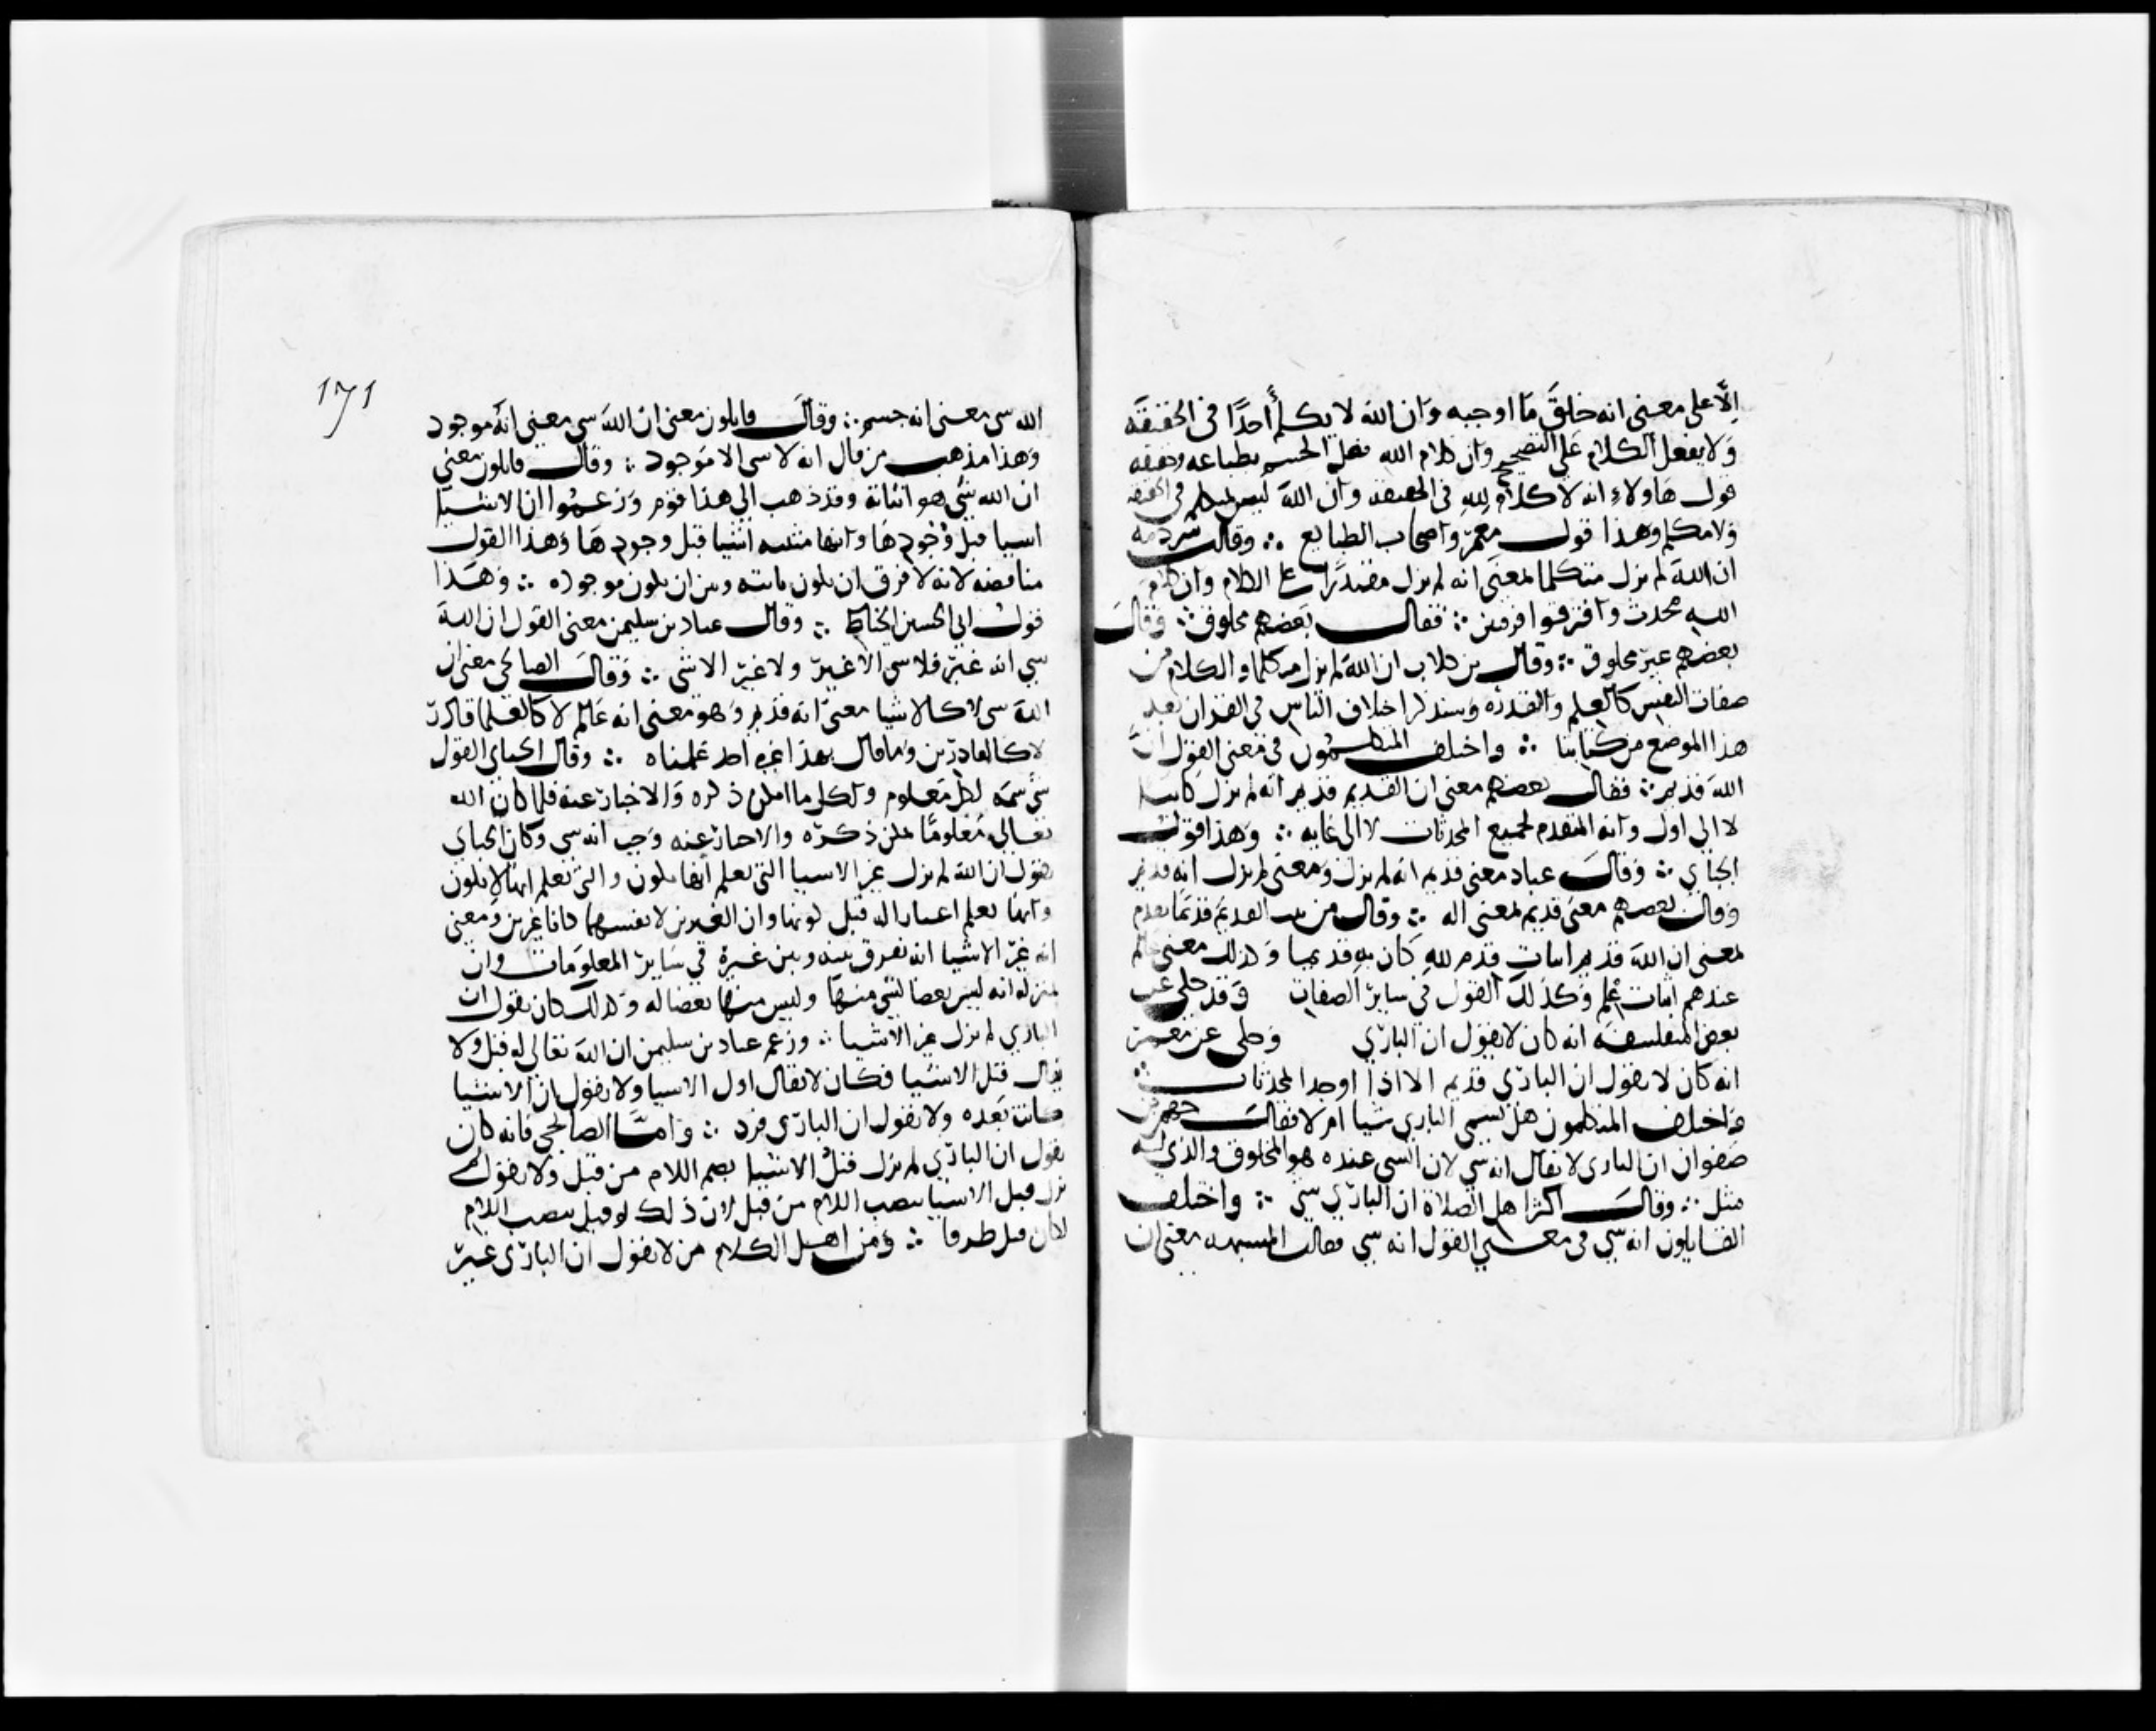 إلّا على معنى انه خلق ما اوجبه وان الله لا يكلم أحدًا في الحقيقه
ولا يفعل الكلام على التصحيح وان كلام الله فعل الجسم بطباعه وحقيقه
قول هاولاء انه لا كلام لله في الحقيقه وان الله ليس بمتكلم في الحقيقه
ولا مكلم وهذا قول معمر واصحاب الطبايع ∴ وقالت شرذمه
ان الله لم يزل متكلما بمعنى انه لم يزل مقتدرًا على الكلام وان كلام
الله محدث وافترقوا فرقتين ∴ فقال بعضهم مخلوق ∴ وقال
بعضهم غير مخلوق ∴ وقال بن كلاب ان الله لم يزل متكلما والكلام من
صفات النفس كالعلم والقدره وسنذكر اختلاف الناس في القران بعد
هذا الموضع من كتابنا ∴ واختلف المتكلمون في معنى القول ان
الله قديم ∴ فقال بعضهم معنى ان القديم قديم انه لم يزل كاينا
لا الى اول وانه المتقدم لجميع المحدثات لا الى غايه ∴ وهذا قول
الجباي ∴ وقال عباد معنى قديم انه لم يزل ومعنى لم يزل انه قديم
وقال بعضهم معنى قديم بمعنى اله ∴ وقال من القديم قديما بقدم
بمعنى ان الله قديم اثبات قدم لله كان به قديما وكذلك معنى عالم
عندهم اثبات علم وكذلك القول في ساير الصفات وقد حكي عن
بعض المتفلسفه انه كان لا يقول ان الباري وحكي عن معمر
انه كان لا يقول ان الباري قديم الا اذا اوجد المحدثات ∴
واختلف المتكلمون هل يسمى الباري شيا ام لا فقال جهم بن
صفوان ان الباري لا يقال انه شي لان الشي عنده هو المخلوق والذي له
مثل ∴ وقال اكثر اهل الصلاة ان الباري شي ∴ واختلف
القايلون انه شي في معنى القول انه شي فقالت المشبهه معنى ان
١٧١
الله شي معنى انه جسم ∴ وقال قايلون معنى ان الله شي معنى انه موجود
وهذا مذهب من قال انه لا شي الا موجود ∴ وقال قايلون معنى
ان الله شي هو اثباته وقد ذهب الى هذا قوم وزعموا ان الاشيا
اشيا قبل وجودها وانها مثبته اشيا قبل وجودها وهذا القول
مناقضه لانه لا فرق ان يكون ثابته وبين ان يكون موجوده ∴ وهذا
قول ابي الحسين الخياط ∴ وقال عباد بن سليمن معنى القول ان الله
شي انه غير فلا شي الا غير ولا غير الا شي ∴ وقال الصالحي معنى ان
الله شي لا كالاشيا معنى انه قديم وهو معنى انه عالم لا كالعلما قادر
لا كالقادرين وما قال بهذا غيره احد علمناه ∴ وقال الجباي القول
شي سمه لكل معلوم ولكل ما امكن ذكره والاخبار عنه فلما كان الله
تعالى معلومًا يمكن ذكره والاخبار عنه وجب انه شي وكان الجباي
يقول ان الله لم يزل غير الاشيا التي يعلم انها تكون والتي يعلم انها لا يكون
وانها يعلم اغيار اله قبل كونها وان الغيرين لانفسهما كانا غيرين ومعنى
انه غير الاشيا انه يفرق بينه وبين غيره في ساير المعلومات وان
بمنزله انه ليس بعضا لشي منها وليس منها بعضا له وكذلك كان يقول ان
الباري لم يزل غير الاشيا ∴ وزعم عباد بن سليمن ان الله تعالى لو قيل ولا
يقال قبل الاشيا فكان لا يقال اول الاشيا ولا يقول ان الاشيا
كانت بعده ولا يقول ان الباري فرد ∴ واما الصالحي فانه كان
يقول ان الباري لم يزل قبلُ الاشيا بضم اللام من قبل ولا يقول لم
يزل قبل الاشيا بنصب اللام من قبل لان ذلك لو قيل بنصب اللام
لكان قبل ظرفا ∴ ومن اهل الكلام من لا يقول ان الباري غير